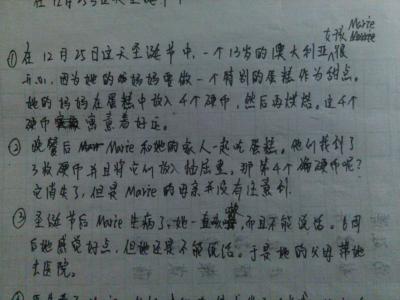 在12月25日这天圣诞节中
女孩 Marie
①在12月25日这天圣诞节中,一个13岁的澳大利亚很
开心,因为她的妈妈要做一个特别的蛋糕作为甜点。
她的妈妈在蛋糕中放入4个硬币,然后再烘焙。这4个
硬币寓意着好运。
②晚餐后Marie和她的家人一起吃蛋糕。他们找到了
3枚硬币并且将它们放入抽屉里。那第4个硬币呢?
它消失了,但是Marie的母亲并没有注意到
③圣诞节后Marie生病了,她一直咳嗽,而且不能说话。6周
后她感觉好点,但她还是不能说话。于是她的父母带她
去医院。